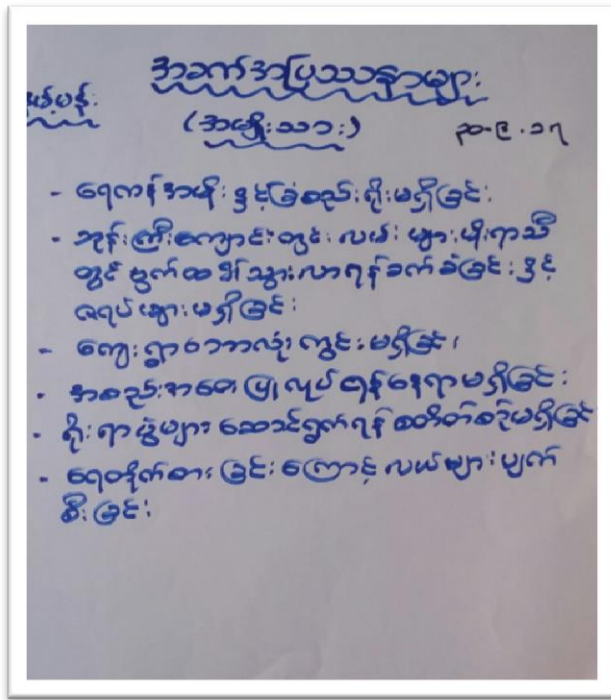 အခက်အပြဿနာများ
(အမျိုးသား)
၃၀-၉-၁၇
- ရေကန်အမိုး နှင့်ခြံစည်းရိုးမရှိခြင်း
- ဘုန်းကြီးကျောင်းတွင် လမ်းများမိုးရာသီ
တွင် ဗွက်ထ၍ သွားလာရန်ခက်ခဲခြင်း နှင့်
ဇရပ်များမရှိခြင်း
- ကျေးရွာဘောလုံးကွင်းမရှိခြင်း
- အစည်းအဝေးပြုလုပ်ရန်နေရာမရှိခြင်း
- ရိုးရာပွဲများဆောင်ရွက်ရန် စတိတ်စင်မရှိခြင်း
- ရေတိုက်စားခြင်းကြောင့် လယ်များပျက်
စီးခြင်း